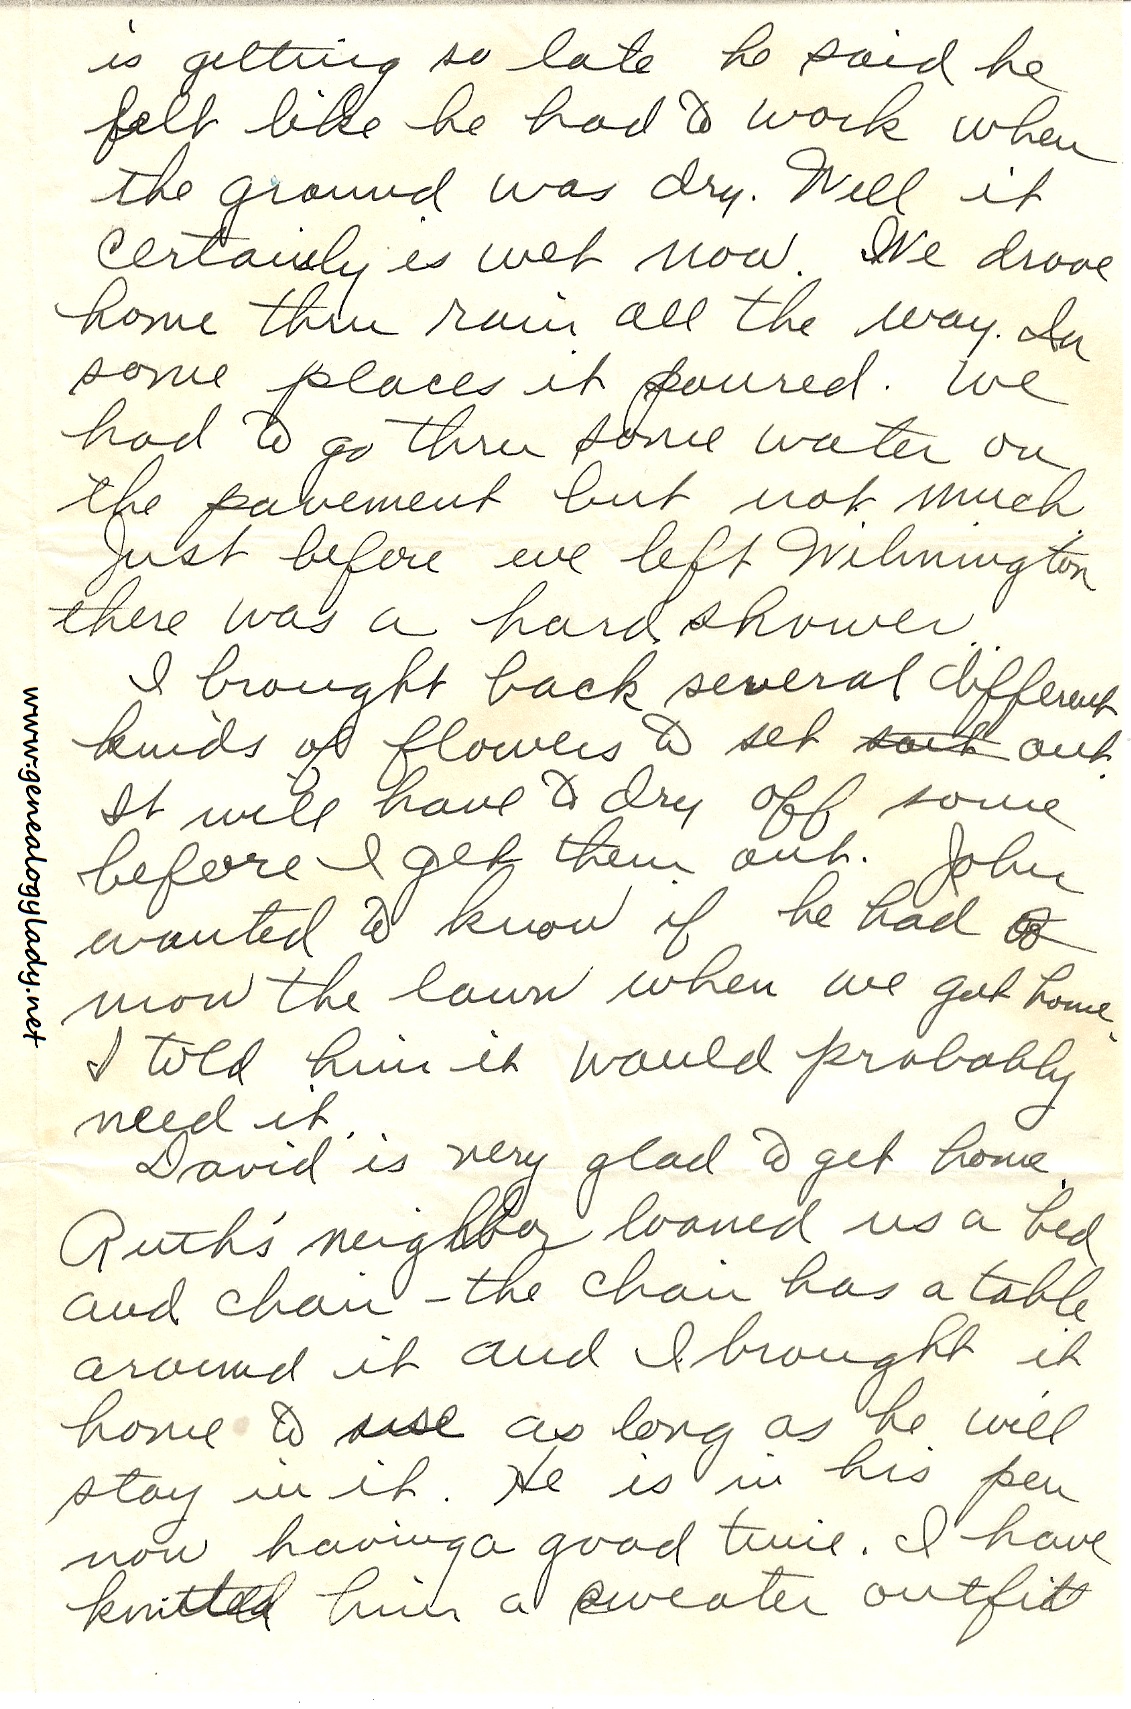 is getting so late he said he
felt like he had to work when
the ground was dry. Well it
certainly is wet now. We drove
home thru rain all the way. In
some places it poured. We
had to go thru some water on
the pavement but not much.
Just before we left Wilmington
there was a hard shower.
I brought back several different
kinds of flowers to set sort out.
It will have to dry off some
before I get them out. John
wanted to know if he had to
mow the lawn when we got home.
I told him it would probably
need it.
David is very glad to get home.
Ruth's neighbor loaned us a bed
and chair – the chair has a table
around it and I brought it
home to use as long as he will
stay in it. He is in his pen
now having a good time. I have
knitted him a sweater outfit
www.genealogylady.net